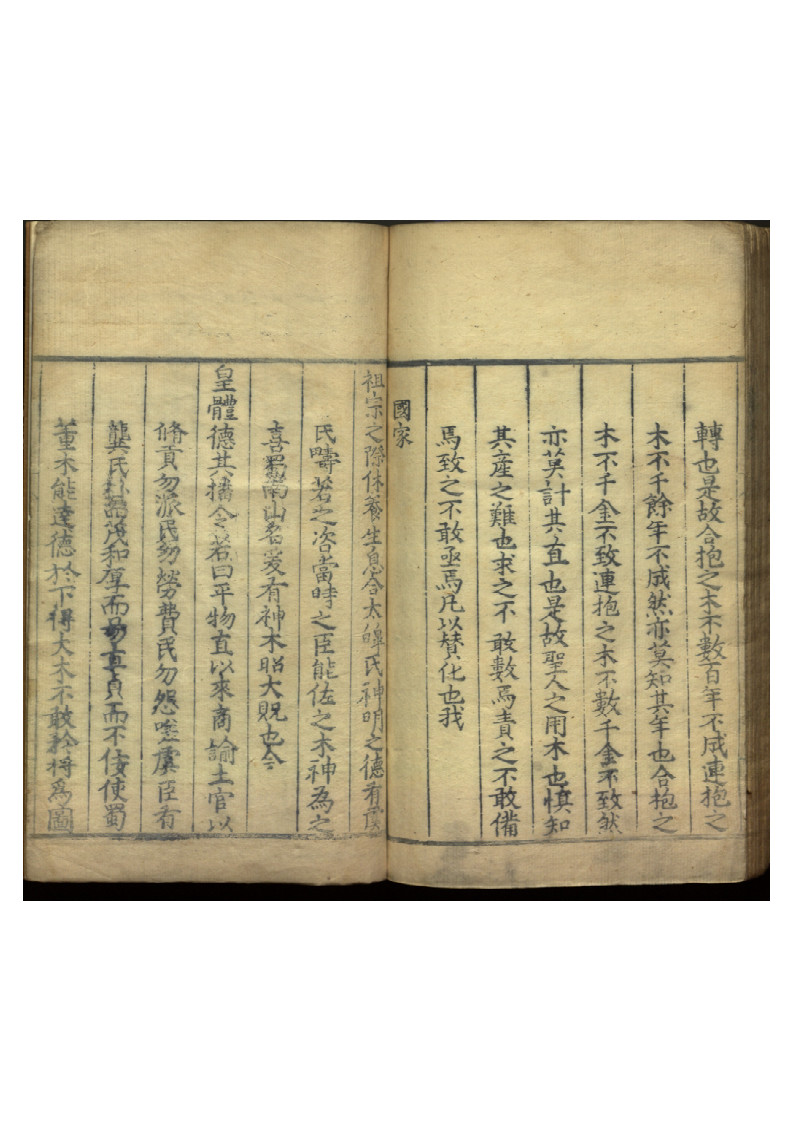 轉也是故合抱之木不數百年不成連抱之
木不千餘年不成然亦莫知其年也合抱之
木不千金不致連抱之木不數千金不致然
亦莫計其直也是故聖人之用木也慎知
其產之難也求之不敢數焉責之不敢備
焉致之不敢亟焉凡以贊化也我
國家
祖宗之際休養生息合太皥氏神明之德有虞
氏疇若之咨當時之臣能佐之木神為之
喜馬湖山名爰有神木昭大貺也今
皇體德其播令若曰平物直以來商諭土官以
脩貢勿派民勿勞費民勿怨咨虞臣有
龔氏茂和厚而易直貞而不伎使蜀
董木能達德於下得大木不敢矜將為圖